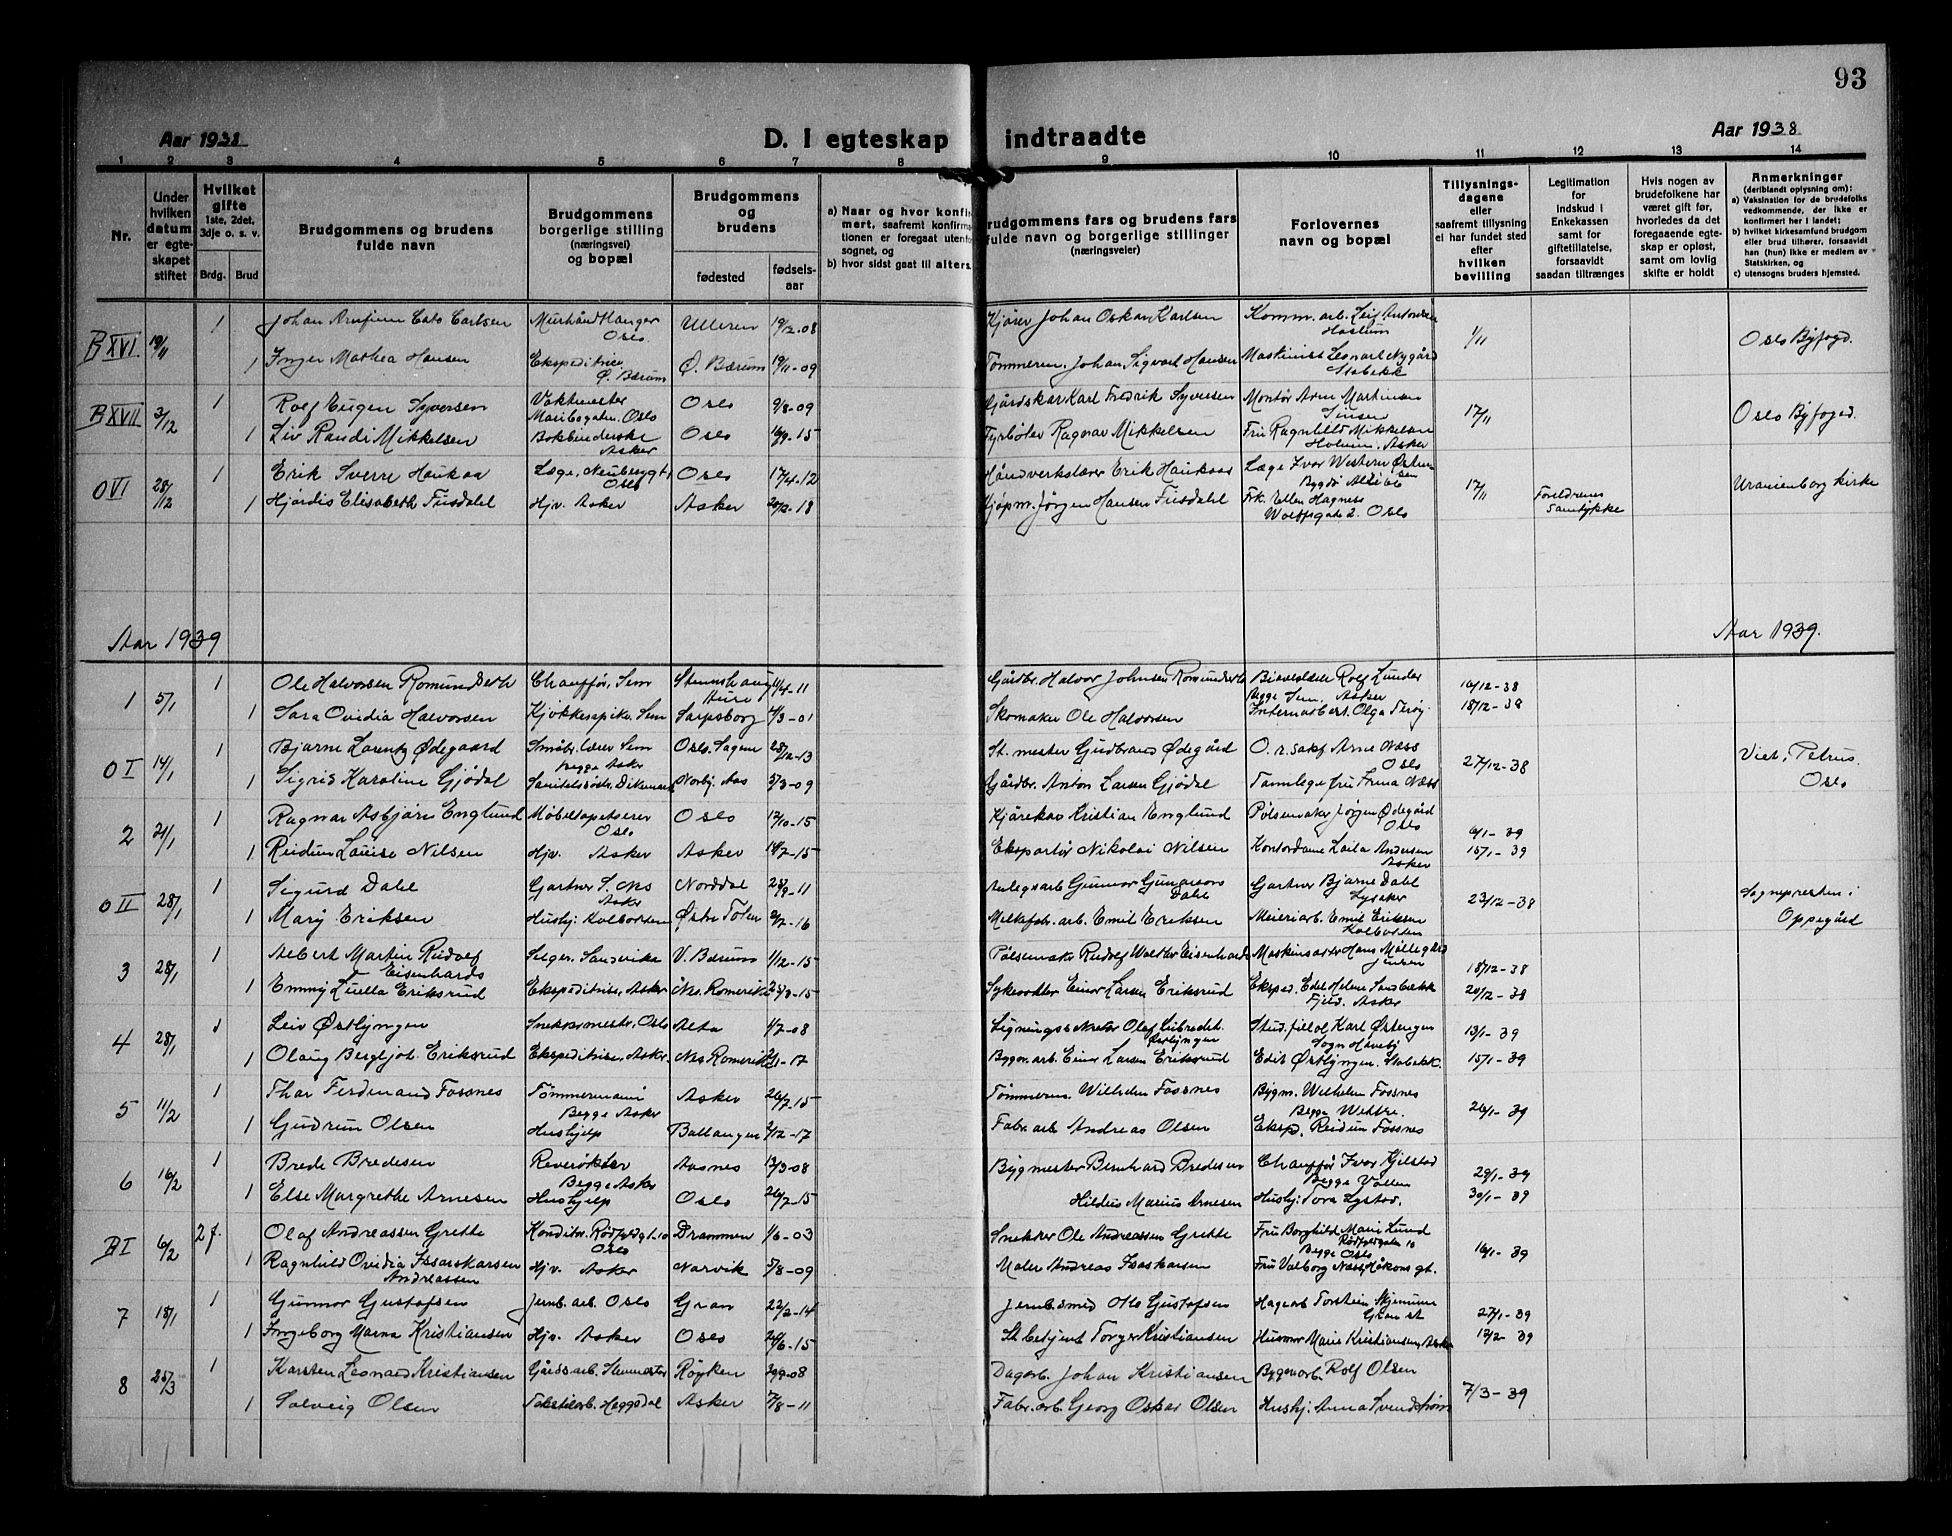 93
Aar 1938
D. I egteskap indtraadte
Aar 1938
1 2 3 4 5 6 7 8 9 10 11 12 13 14
Nr.
Under hvilken datum er egteskapet stiftet
Hvilket gifte 1ste, 2det, 3dje o. s. v.
Brdg. Brud
Brudgommens og brudens fulde navn
Brudgommens borgerlige stilling (næringsvei) og bopæl
Brudgommens og brudens
fødested
fødsels-aar
a) Naar og hvor konfir
mert, saafremt konfirma
tionen er foregaat utenfo
sognet, og
b) hvor sidst gaat til alters.
rudgommens fars og brudens fars
fulde navn og borgerlige stillinger
(næringsveier)
Forlovernes
navn og bopæl
Tillysnings-
dagene
eller
saafremt tillysning
ei har fundet sted
efter
hvilken
bevilling
Legitimation
for
indskud i
Enkekassen
samt for
giftetillatelse,
forsaavidt
saadan tiltrænges
Hvis nogen av
brudefolkene har
været gift før,
hvorledes da det
foregaaende egte-
skap er opløst,
samt om lovlig
skifte er holdt
Anmerkninger
(deriblandt oplysning om):
a) Vaksination for de brudefolks
vedkommende, der ikke er
konfirmert her i landet;
b) hvilket kirkesamfund brudgom
eller brud tilhører, forsaavidt
han (hun) ikke er medlem av
Statskirken, og
c) utensogns bruders hjemsted.
B XVI 19/11 1 Johan Arnfinn Cato Carlsen Oslo Ulleren 19/12-08 Kjører Johan Oskar Karlsen Komm. arb. Leif Antonsen Haslum 1/11 Oslo Byfogd.
1 Inger Mathea Hansen Ekspeditrise Ø. Bærum Ø. Bærum 19/11-09 Tømmerm. Johan Sigvart Hansen Maskinist Leonart Nygård Stabekk
B XVII 3/12 1 Rolf Eugen Syversen Vaktmester Maribogaten, Oslo Oslo 9/8-09 Gårdskar Karl Fredrik Syversen Montør Arne Martinsen Sinsen 17/11 Oslo Byfoged.
1 Liv Randi Mikkelsen Bokbinderske Asker Oslo 16/9-15 Fyrbøter Ragnar Mikkelsen Fru Ragnhild Mikkelsen Holmen, Asker
O VI 28/12 1 Erik Sverre Haukaa Læge, Neubergt. Oslo Oslo 17/4-12 Håndverkslærer Erik Haukaas Læge Ivar Western Østensen Bygdø Allé 17/11 Uranienborg kirke
1 Hjørdis Elisabeth Fusdahl Hjv. Asker Asker 20/2-18 Kjøpm. Jørgen Hansen Fusdahl Frk. Ellen Hagness Wolffsgate 2. Oslo Foreldrenes samtykke
Aar 1939 Aar 1939.
1 5/1 1 Ole Halvorsen Romundseth Chauffør, Sem Stemshaug Aure 1/4-11 Gårdbr. Halvor Johnsen Romundseth Rolf Lunder Begge Sem, Asker 16/12-38
1 Sara Ovidia Halvorsen Kjøkkenpike, Sem Sarpsborg 4/3-01 Skomaker Ole Halvorsen Internatbest. Olga Terøy 18/12-38
O I 14/1 1 Bjarne Lorentz Ødegaard Småbr. lærer Sem Begge Asker Oslo. Sagene 28/12-13 St. mester Gudbrand Ødegård O. r. sakf Arne Næss Oslo 27/12-38 Viet, Petrus. Oslo
1 Sigrid Karoline Gjødal Dikemark Norby, Aas 5/3-09 Gårdbr. Anton Larsen Gjødal Tannlege fru Erna Næss
2 21/1 1 Ragnar Asbjørn Englund Møbeltapetserer Oslo Oslo 12/10-15 Kjørekar Kristian Englund Pølsemaker Jørgen Ødegård Oslo 6/1-39
1 Reidun Louise Nilsen Hjv. Asker Asker 14/7-15 Ekspartør Nikolai Nilsen Kontordame Laila Andersen Asker 15/1-39
O II 28/1 1 Sigurd Dahl Gartner S. Nes Asker Norddal 23/9-11 Anlegsarb Gunnar Gunarsons Dahl Gartner Bjarne Dahl Lysaker 23/12-38 Sognepresten i Oppegård
1 Mary Eriksen Hushj. Kolbotten Østre Toten 2/7-16 Melkefabr. arb. Emil Eriksen Meieriarb. Emil Eriksen Kolbotten
3 28/1 1 Albert Martin Rudolf Eisenhards Selger, Sandvika V. Bærum 1/12-15 Pølsemaker Rudolf Walter Eisenhards Maskinsetter Hans Møllegård Jensen 18/12-38
1 Emmy Luella Eriksrud Ekspeditrise, Asker Nes. Romerike Sykevokter Einar Larsen Eriksrud Eksped. Edel Helene Sandbekk Fjeld. Asker 20/12-38
4 28/1 1 Leiv Østlyngen Snekkermester, Oslo Alta 1/7-08 Ligningssekretær Olaf Østlyngen Stud. filol Karl Østlyngen Sogn Haveby 13/1-39
1 Olaug Bergljot Eriksrud Ekspeditrise, Asker Nes Romerike 2/1-17 Bygn. arb. Einar Larsen Eriksrud Edit Østlyngen. Stabekk. 15/1-39
5 11/2 1 Thor Ferdinand Fossnes Tømmermann Begge Asker Asker 26/7-15 Tømmerm. Wilhelm Fossnes Bygm. Wilhelm Fossnes Begge Wettre. 26/1-39
1 Gudrun Olsen Hushjelp Ballangen 2/12-17 Fabr. arb Andreas Olsen Eksp. Reidun Fossnes
6 16/2 1 Brede Bredesen Reverøkter Begge Asker Aasnes 13/3-08 Bygmester Bernhard Bredesen Chauffør Ivar Kjelstad Begge Vollen 29/1-39
1 Else Margrethe Arnesen Hushjelp Oslo 26/7-15 Hildus Marius Arnesen Hushj. Tora Lystad. 30/1-39
B I 6/2 2 f. Olaf Andreassen Grette Konditor. Rødfyldgt. 10 Oslo Drammen 1/6-03 Snekker Ole Andreassen Grette Fru Borghild Marie Lund Rødfyldgaten 10 Begge Oslo 16/1-39
1 Ragnhild Ovidia Issaskarsen Andreassen Hjv. Asker Narvik 3/8-09 Maler Andreas Isaskarsen Fru Valborg Næss, Håkons gt.
7 18/1 1 Gunnar Gustafsen Jernb. arb. Oslo Gran 22/2-14 Jernb. smed Otto Gustafsen Hagearb Torstein Skjennum Gran st 27/1-39
1 Ingeborg Marna Kristiansen Hjv. Asker Oslo 20/6-15 St. betjent Torger Kristiansen Husmor Marie Kristiansen, Asker 12/2-39
8 25/3 1 Karsten Leonard Kristiansen Gårdsarb. Røyken 29/9-08 Dagarb. Johan Kristiansen Bygn. arb. Rolf Olsen 7/3-39
1 Solveig Olsen Tekstilarb. Heggedal Asker 7/8-11 Fabr. arb. Georg Oskar Olsen Hushj. Anna Svendstrøm